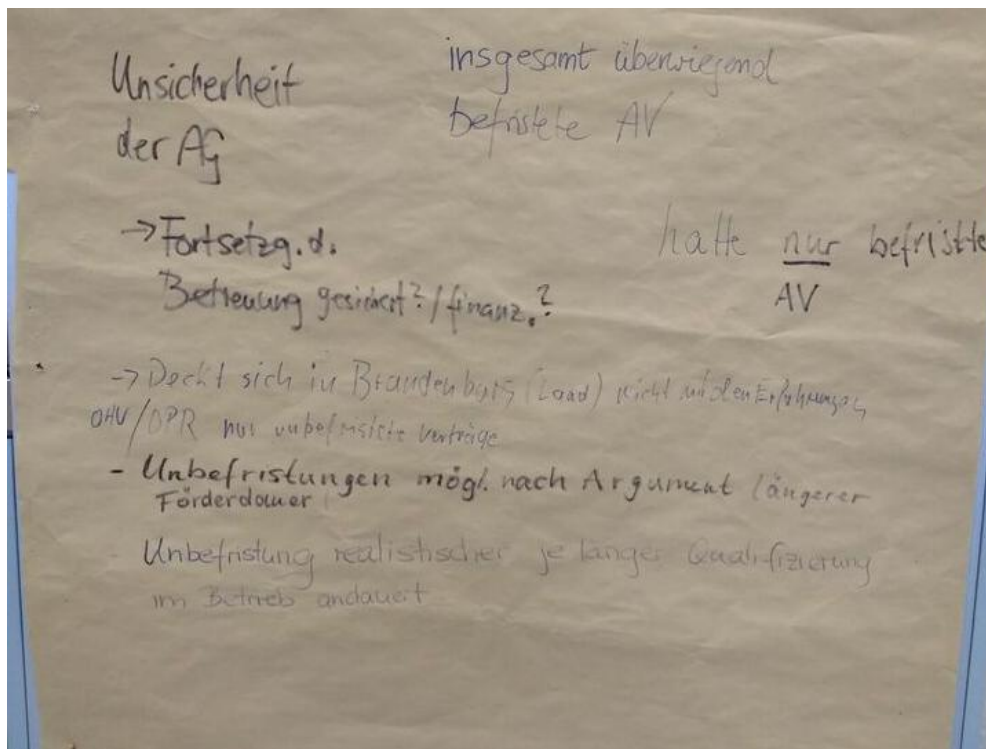 Unsicherheit
der AG
insgesamt überwiegend
befristete AV
→ Fortsetzg. d.
Betreuung gesichert? / finanz.?
hatte nur befristte
AV
→ Deckt sich in Brandenburg (Land) nicht mit den Erfahrungen,
OHV/OPR nur unbefristete Verträge
- Unbefristungen mögl. nach Argument längerer
Förderdauer
- Unbefristung realistischer je länger Qualifizierung
im Betrieb andauert